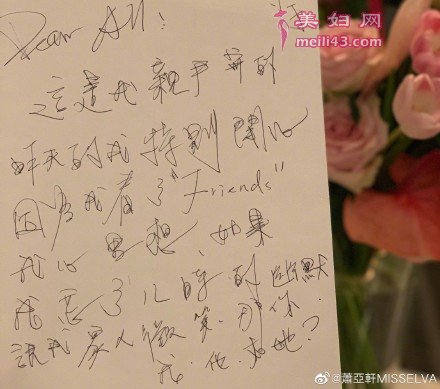 美妇网
meili43.com
Dear All :
這是我親手寫的
昨天的我特別開心
因為我看了"Friends"
我心里想、如果
我丟了兒時的幽默
我家人
我 他.她?
@蕭亞軒MISSELVA